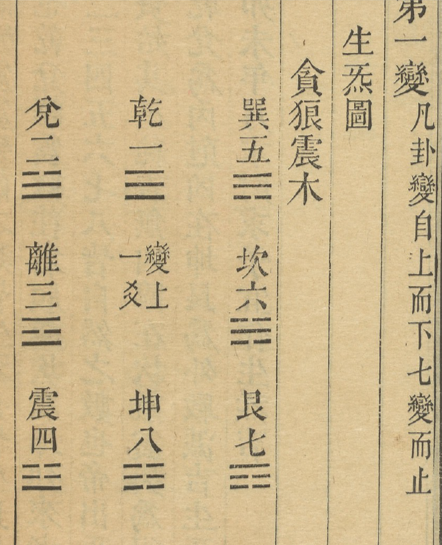 第一變凡卦變自上而下七變而止
生炁圖
貪狼震木
巽五☴ 坎六☵ 艮七☶
乾一☰ 變上一爻 坤八☷
兌二☱ 離三☲ 震四☳